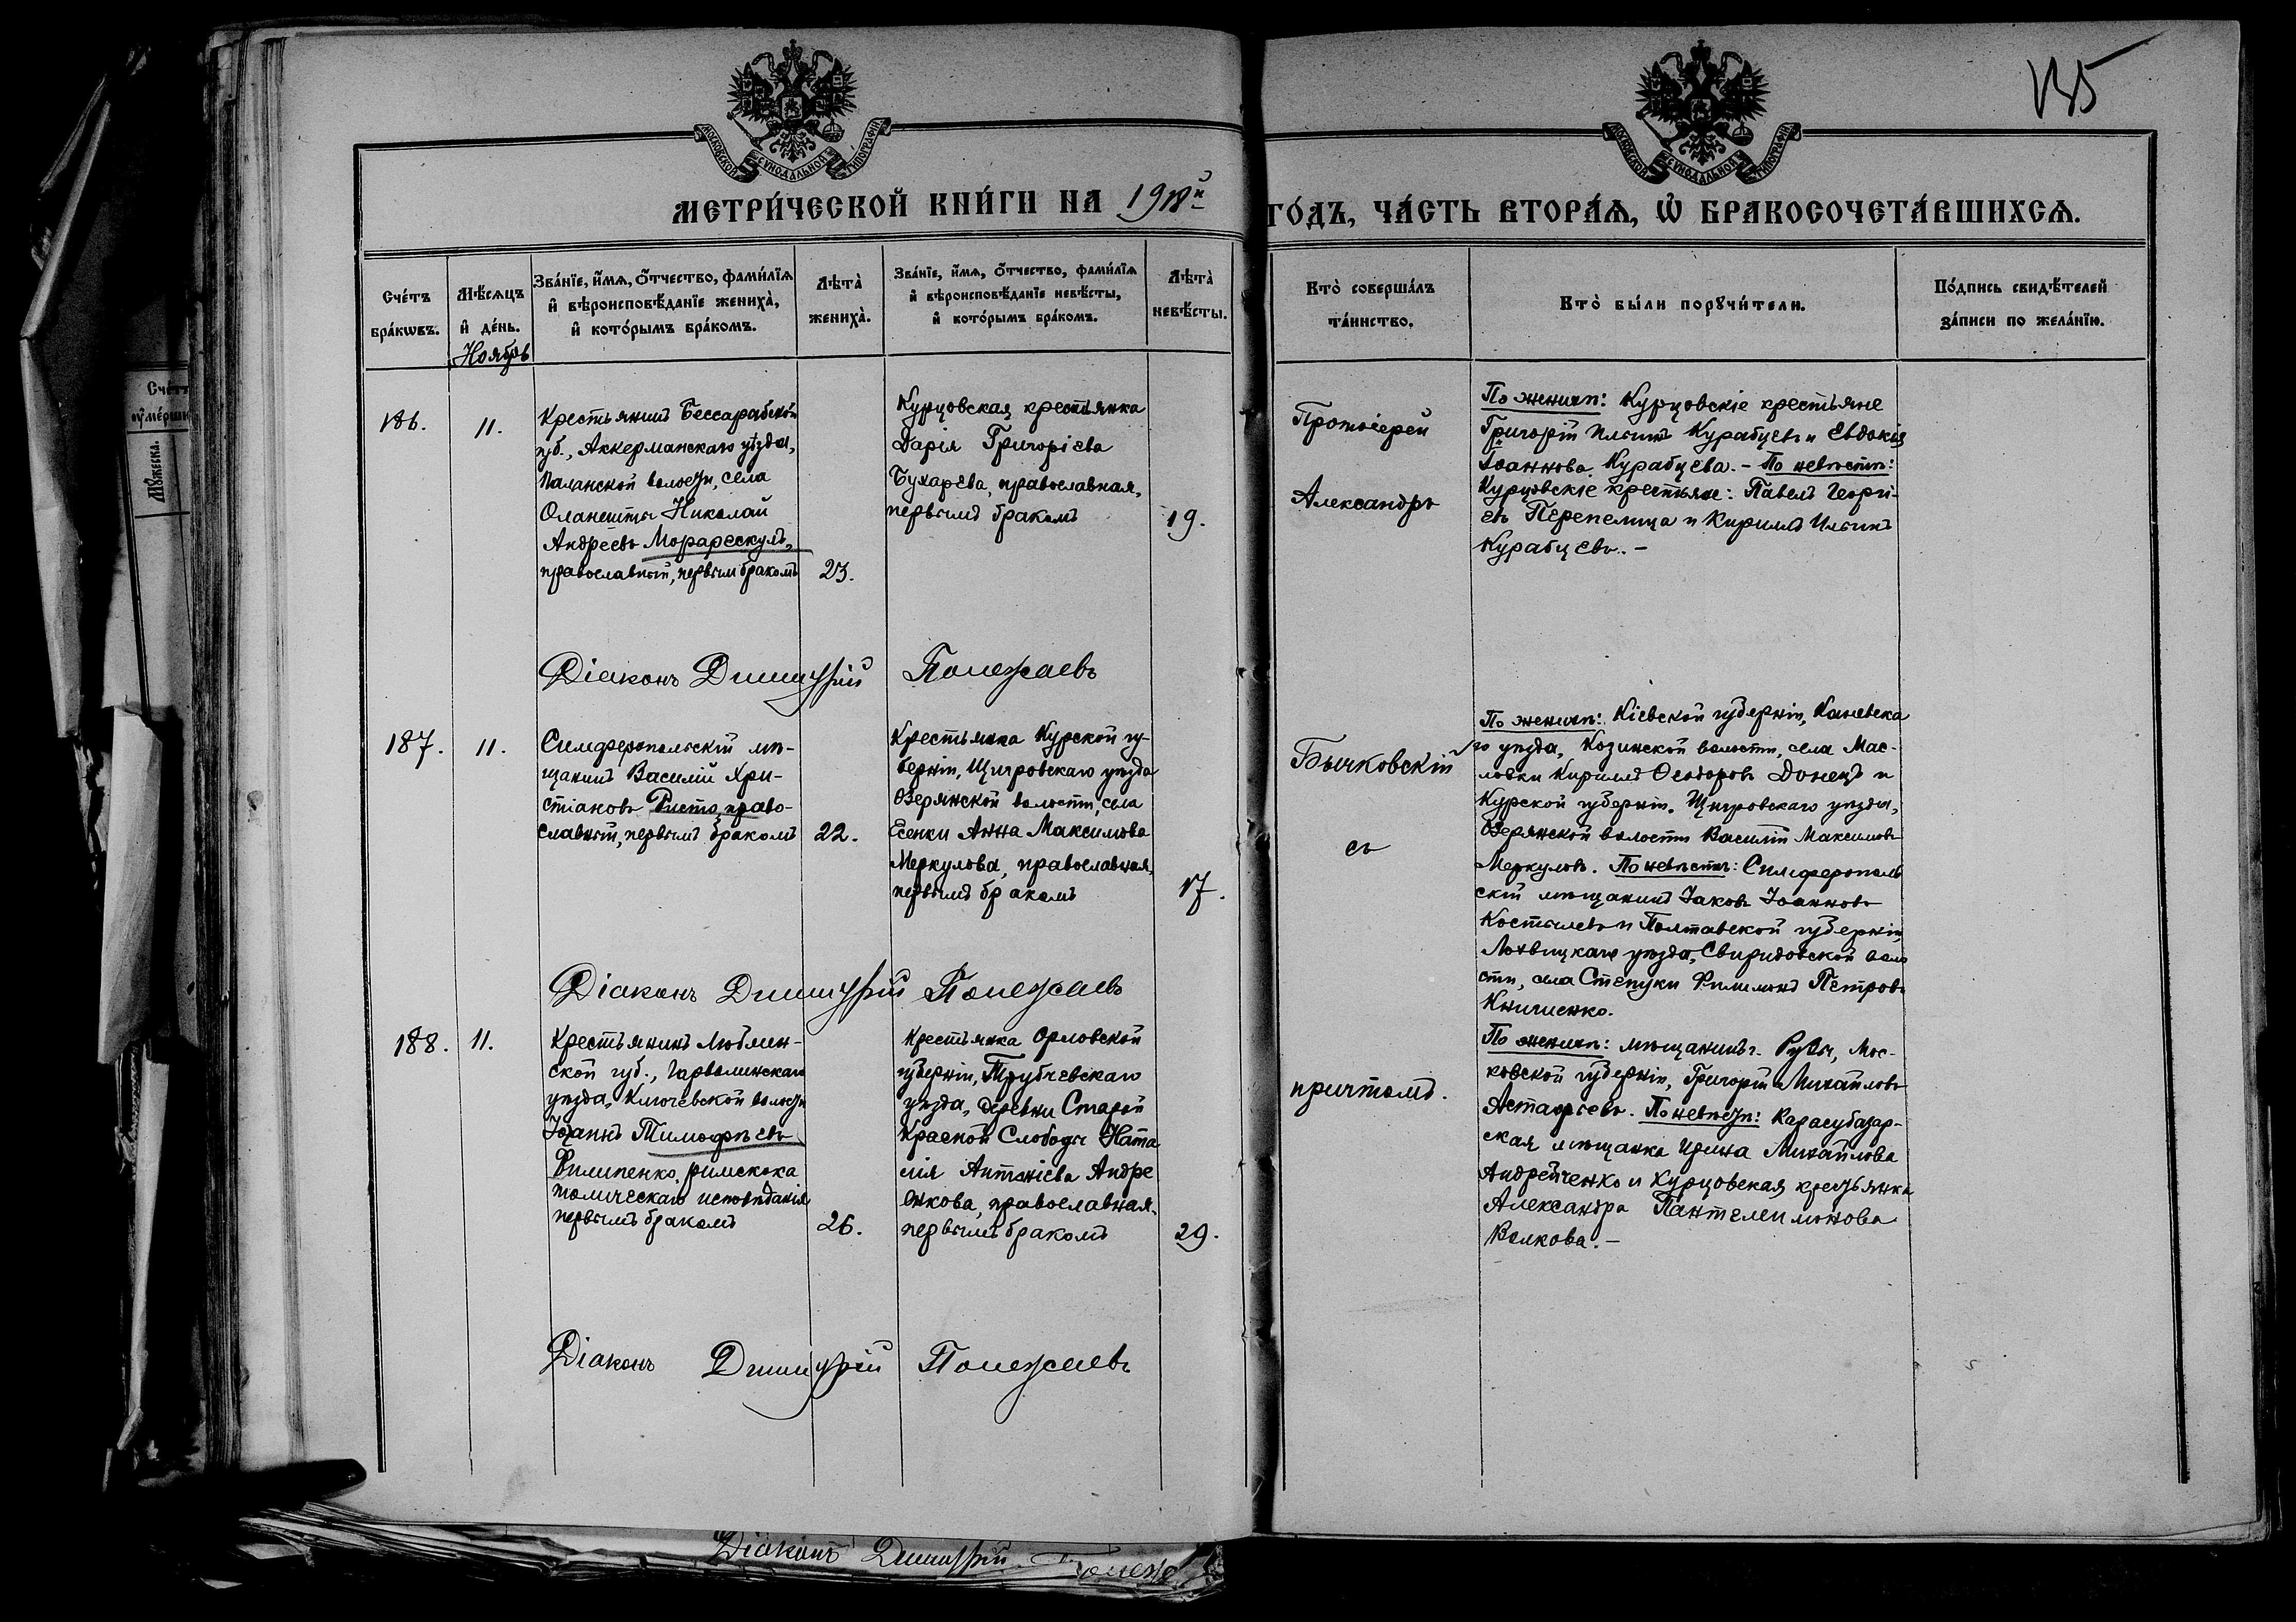 135
МОСКОВСКОЙ СѴНОДАЛЬНОЙ ТИПОГРАФІИ
МОСКОВСКОЙ СѴНОДАЛЬНОЙ ТИПОГРАФІИ
МЕТРИ́ЧЕСКОЙ КНИ́ГИ НА 1918й ГО́ДЪ, ЧА́СТЬ ВТОРА́Ѧ, Ѽ БРАКОСОЧЕТА́ВШИХСѦ.
Сче́тъ
бра́кωвъ.
Мѣ́сѧцъ
и҆ де́нь.
Ноябрь
Зва́нїе, и҆́мѧ, ѻ҆́тчество, фами́лїѧ
и҆ вѣроисповѣ́данїе жениха̀,
и҆ кото́рымъ бра́комъ.
Лѣта̀
жениха̀.
Зва́нїе, и҆́мѧ, ѻ҆́тчество, фами́лїѧ
и҆ вѣроисповѣ́данїе невѣ́сты,
и҆ кото́рымъ бра́комъ.
Лѣта̀
невѣ́сты.
Кто̀ соверша́лъ
та́инство.
Кто̀ бы́ли порꙋчи́тели.
По́дпись свидѣ́телей
за́писи по жела́нїю.
186.
11.
Крестьянинъ Бессарабской
губ., Аккерманскаго уѣзда,
Паланской волости, села
Оланешты Николай
Андреевъ Морарескулъ,
православный, первымъ бракомъ
23.
Курцовская крестьянка
Дарія Григоріева
Бухарева, православная,
первымъ бракомъ
19.
Протоіерей
Александръ
По женихѣ: Курцовскіе крестьяне
Григорій Ильинъ Курабцевъ и Евдокія
Іоаннова Курабцева. – По невѣстѣ:
Курцовскіе крестьяне: Павелъ Георгі-
евъ Перепелица и Кириллъ Ильинъ
Курабцевъ. –
Діаконъ Димитрій Полежаевъ
187.
11.
Симферопольскій мѣ-
щанинъ Василій Хри-
стіановъ Ристо, право-
славный, первымъ бракомъ
22.
Крестьянка Курской гу-
берніи, Щигровскаго уѣзда
Озерянской волости, села
Есенки Анна Максимова
Меркулова, православная,
первымъ бракомъ
17.
Бычковскій
съ
По женихѣ: Кіевской губерніи, Каневска
го уѣзда, Козинской волости, села Мас-
ловки Кириллъ Ѳеодоровъ Донецъ и
Курской губерніи, Щигровскаго уѣзда,
Озерянской волости Василій Максимовъ
Меркуловъ. По невѣстѣ: Симферополь
скій мѣщанинъ Іаковъ Іоанновъ
Костылевъ и Полтавской губерніи,
Лохвицкаго уѣзда, Свиридовской воло
сти, села Степуки Филимонъ Петровъ
Книшенко.
Діаконъ Димитрій Полежаевъ
188.
11.
Крестьянинъ Люблин-
ской губ., Гарволинскаго
уѣзда, Ключевской волости
Іоаннъ Тимофѣевъ
Филипенко, римскока
толическаго исповѣданія
первымъ бракомъ
26.
Крестьянка Орловской
губерніи, Трубчевскаго
уѣзда, деревни Старой
Красной Слободы Ната
лія Антоніева Андре
енкова, православная,
первымъ бракомъ
29.
причтомъ.
По женихѣ: мѣщанинъ г. Рузы, Мос-
ковской губерніи, Григорій Михайловъ
Астафьевъ. По невѣстѣ: Карасубазар-
ская мѣщанка Ирина Михайлова
Андрейченко и Курцовская крестьянка
Александра Пантелеимонова
Волкова. –
Діаконъ Димитрій Полежаевъ
Діаконъ Димитрій Полеж